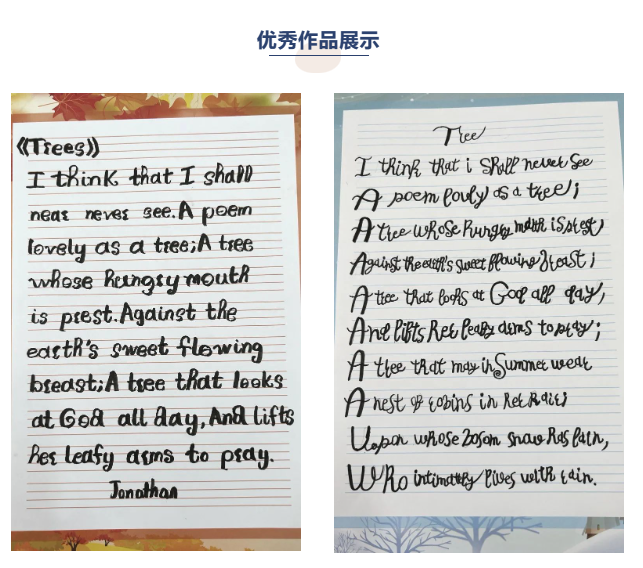 优秀作品展示
《Trees》
I think that I shall
near never see.A poem
lovely as a tree;A tree
whose hungry mouth
is prest.Against the
earth's sweet flowing
breast;A tree that looks
at God all day,And lifts
her leafy arms to pray.
Jonathan
Tree
I think that i shall never see
A poem lovly as a tree;
A tree whose hungry mouth is prest,
Against the earth's sweet flowing breast;
A tree that looks at God all day,
And lifts her leafy arms to pray;
A tree that may in Summer wear
A nest of robins in her hair;
Upon whose bosom snow has lain,
Who intimately lives with rain.